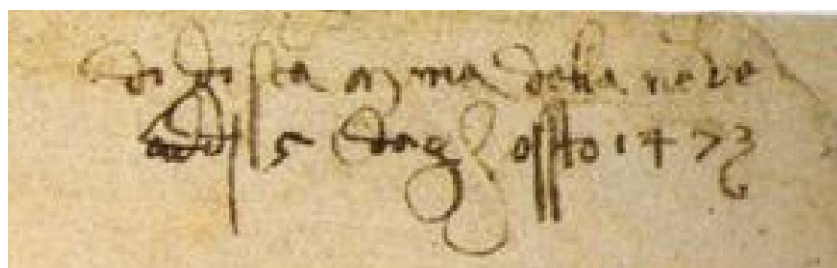 di di sta ma della neve
adj 5 daghossto 1473